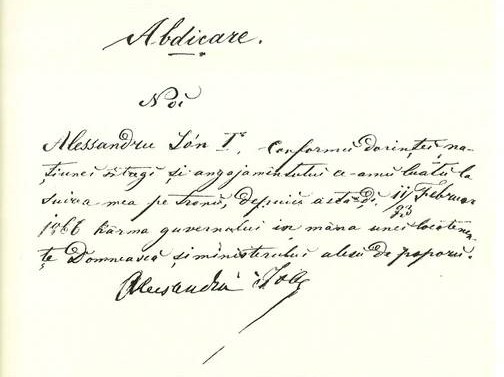 Abdicare.
Noi
Alessandru Ión I^s, Conformŭ dorinței na-
țiunei întregi și angajamentului ce-amŭ luatŭ la
suirea-mea pe tronŭ, depuiŭ astă-dĭ 11/23 Februar
1866 kârma guvernului in mâna unei locotenen-
țe Domnească și ministerului alesŭ de poporŭ.
Alecsandru Ioan